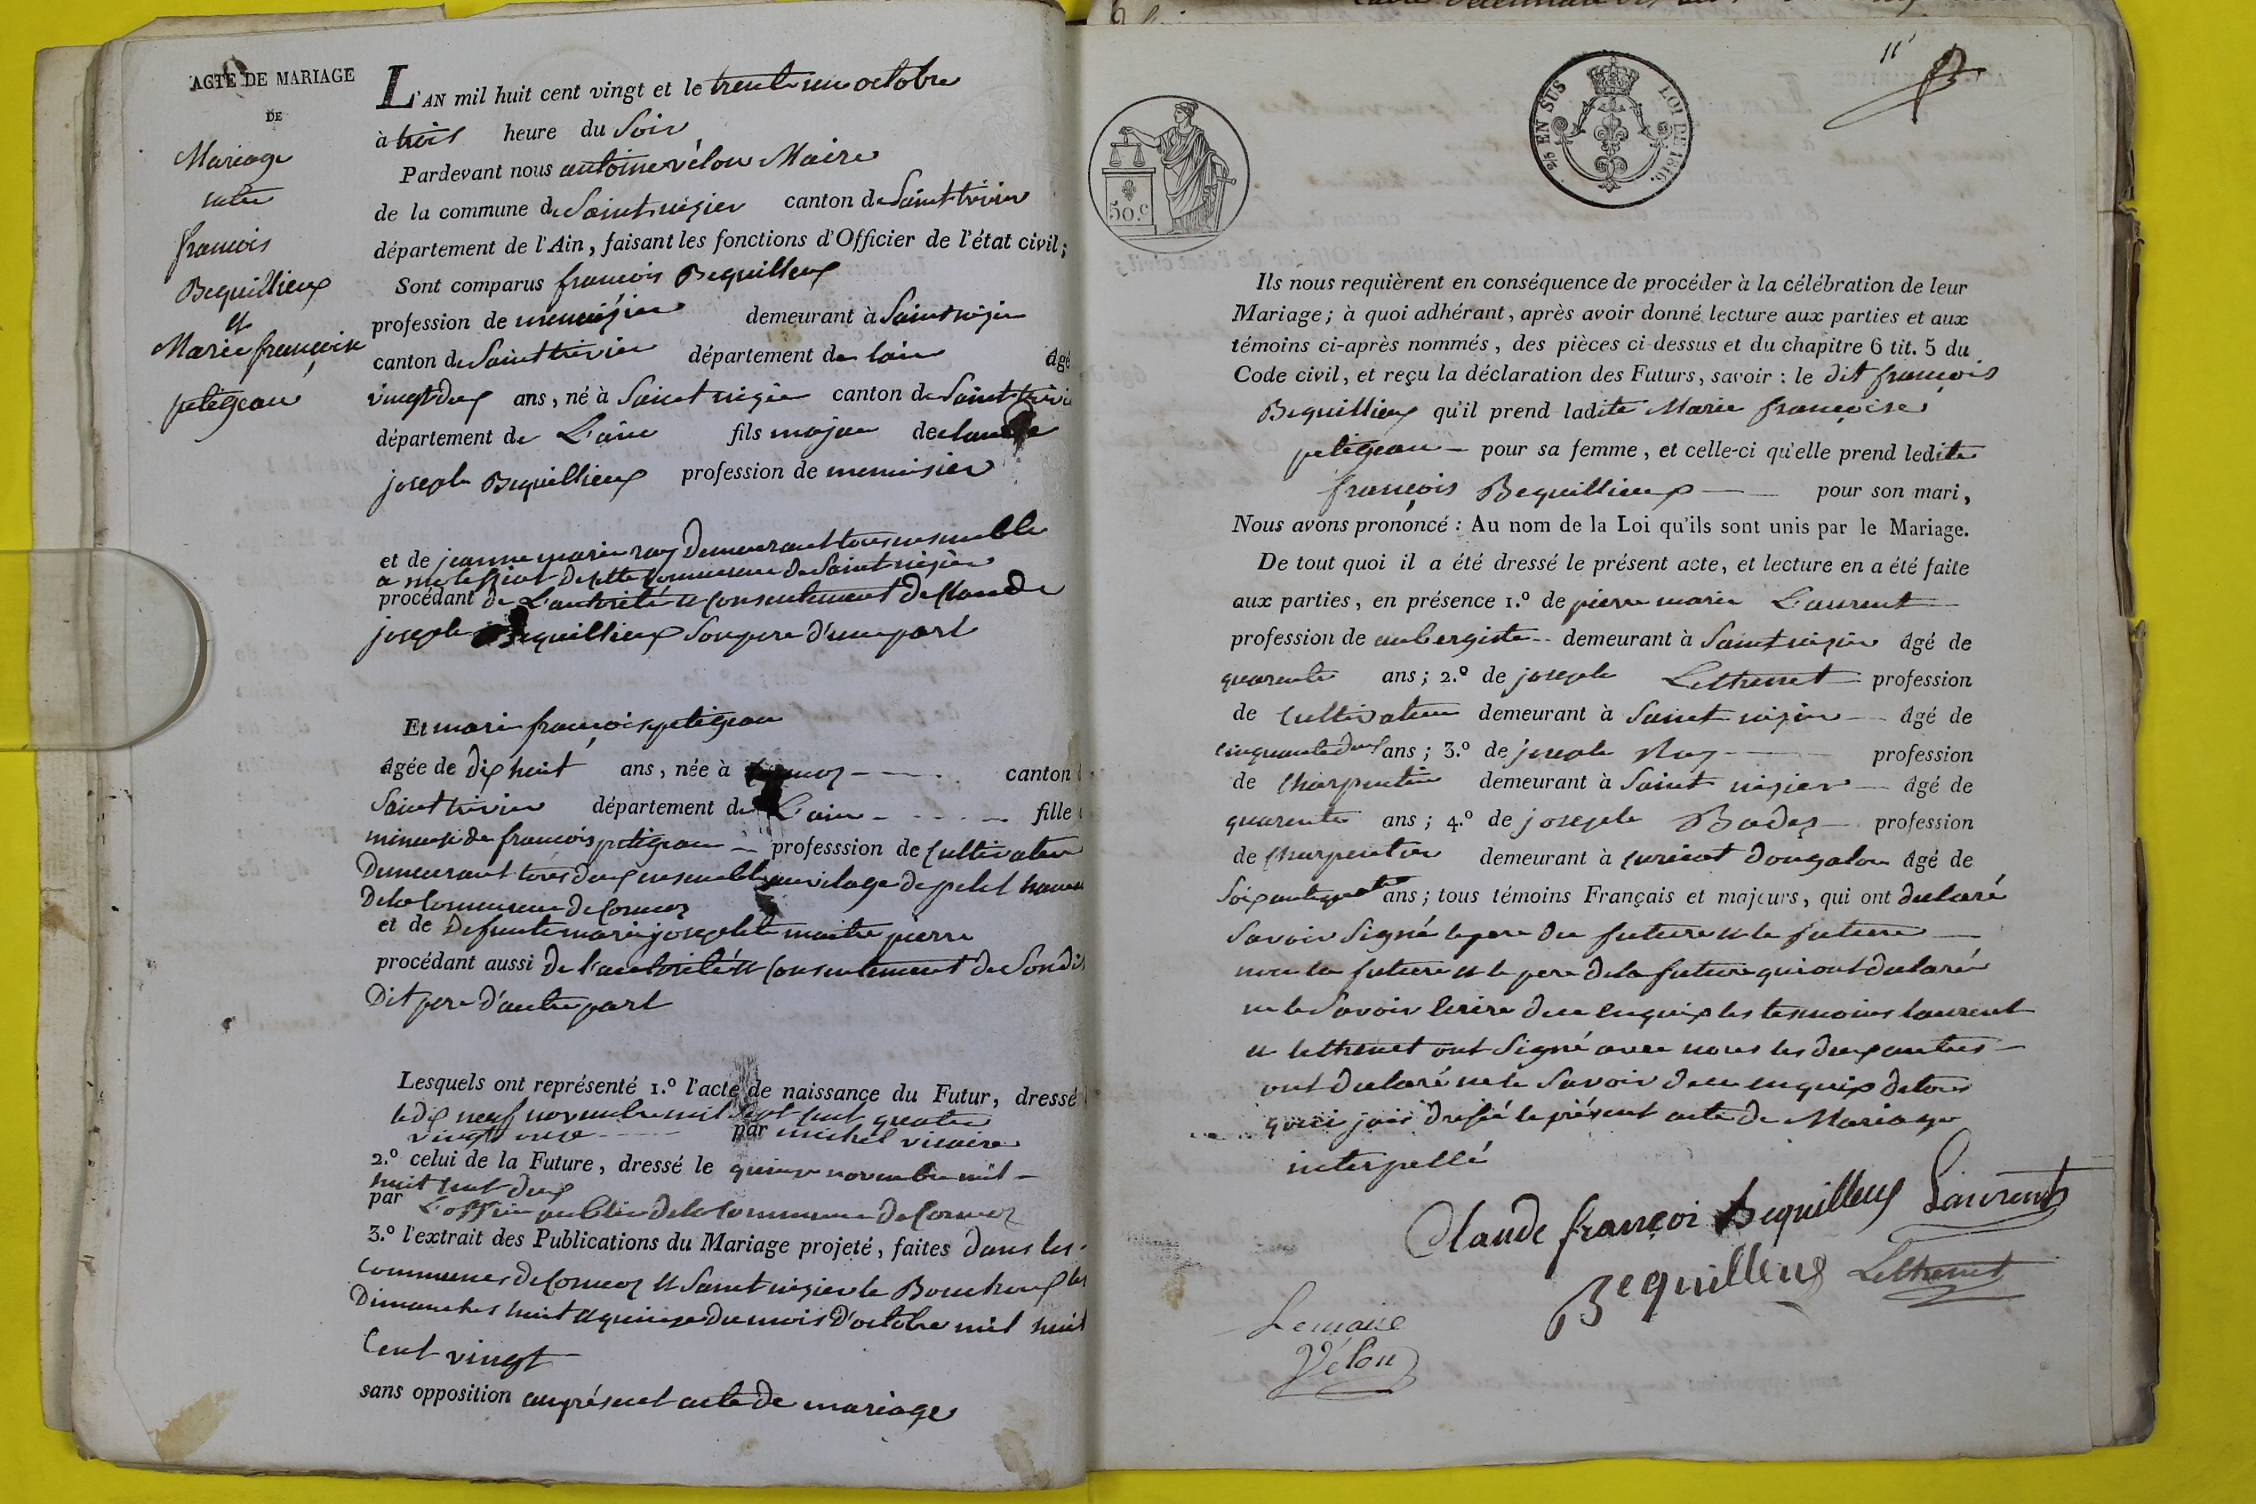 ACTE DE MARIAGE
DE
Mariage
entre
françois
Bequillieux
et
Marie françoise
petigean
L'AN mil huit cent vingt et le trente un octobre
à trois heure du Soir
Pardevant nous antoine vélon Maire
de la commune de Saint nizier canton de Saint trivier
département de l'Ain, faisant les fonctions d'Officier de l'état civil;
Sont comparus françois Bequilleux
profession de menuisier demeurant à Saint nizier
canton de Saint trivier département de lain âgé
vingt deux ans, né à Saint nizier canton de Saint trivier
département de L'ain fils majeur de claude
joseph Bequillieux profession de menuisier
et de jeanne marie ray demeurant tous ensemble
a de cette commune de Saint nizier
procédant de L'autorité et consentement de Claude
joseph Bequillieux Son pere d'une part
Et marie françoise petigean
âgée de dix huit ans, née à Cormoz canton
Saint trivier département de L'ain fille
mineure de françois petigean professsion de Cultivateur
Demeurant tous deux ensemble au vilage de petit
De la Commune de Cormoz
et de Defunte marie josephte maitre pierre
procédant aussi de l'autorité et consentement de Sondit
Dit pere d'autre part
Lesquels ont représenté 1.º l'acte de naissance du Futur, dressé
le dix neuf novembre mil sept cent quatre
vingt onze par michel vicaire
2.º celui de la Future, dressé le quinze novembre mil
huit cent deux
par L'officier public de la Commune de Cormoz
3.º l'extrait des Publications du Mariage projeté, faites dans les
Communes de Cormoz et Saint nizier le Bouchoux les
Dimanches huit et quinze du mois D'octobre mil huit
Cent vingt
sans opposition au présent acte de mariage
11
50.c
25 EN SUS LOI DE 1816.
Ils nous requièrent en conséquence de procéder à la célébration de leur
Mariage; à quoi adhérant, après avoir donné lecture aux parties et aux
témoins ci-après nommés, des pièces ci-dessus et du chapitre 6 tit. 5 du
Code civil, et reçu la déclaration des Futurs, savoir : le dit françois
Bequillieux qu'il prend ladite Marie françoise
petigean pour sa femme, et celle-ci qu'elle prend ledite
françois Bequillieux pour son mari,
Nous avons prononcé : Au nom de la Loi qu'ils sont unis par le Mariage.
De tout quoi il a été dressé le présent acte, et lecture en a été faite
aux parties, en présence 1.º de pierre marie Laurent
profession de aubergiste demeurant à Saint nizier âgé de
quarente ans; 2.º de joseph Lethenet profession
de Cultivateur demeurant à Saint nizier âgé de
cinquante deux ans; 3.º de joseph Ray profession
de Charpentier demeurant à Saint nizier âgé de
quarente ans; 4.º de joseph Badez profession
de Charpentier demeurant à Curciat dongalon âgé de
Soixante quatre ans; tous témoins Français et majeurs, qui ont declaré
Savoir Signé le pere du future et le future
non la future et le pere de la future qui ont declaré
ne le Savoir Ecrire de ce enquix les temoins laurent
et lethenet ont Signé avec nous les deux autres
ont declaré ne le Savoir de ce enquix de tous
quoi jais dressé le présent acte de Mariage
interpellé
Claude françoi Bequilleux Laurent
Bequilleux Lethenet
Le maire
Vélon